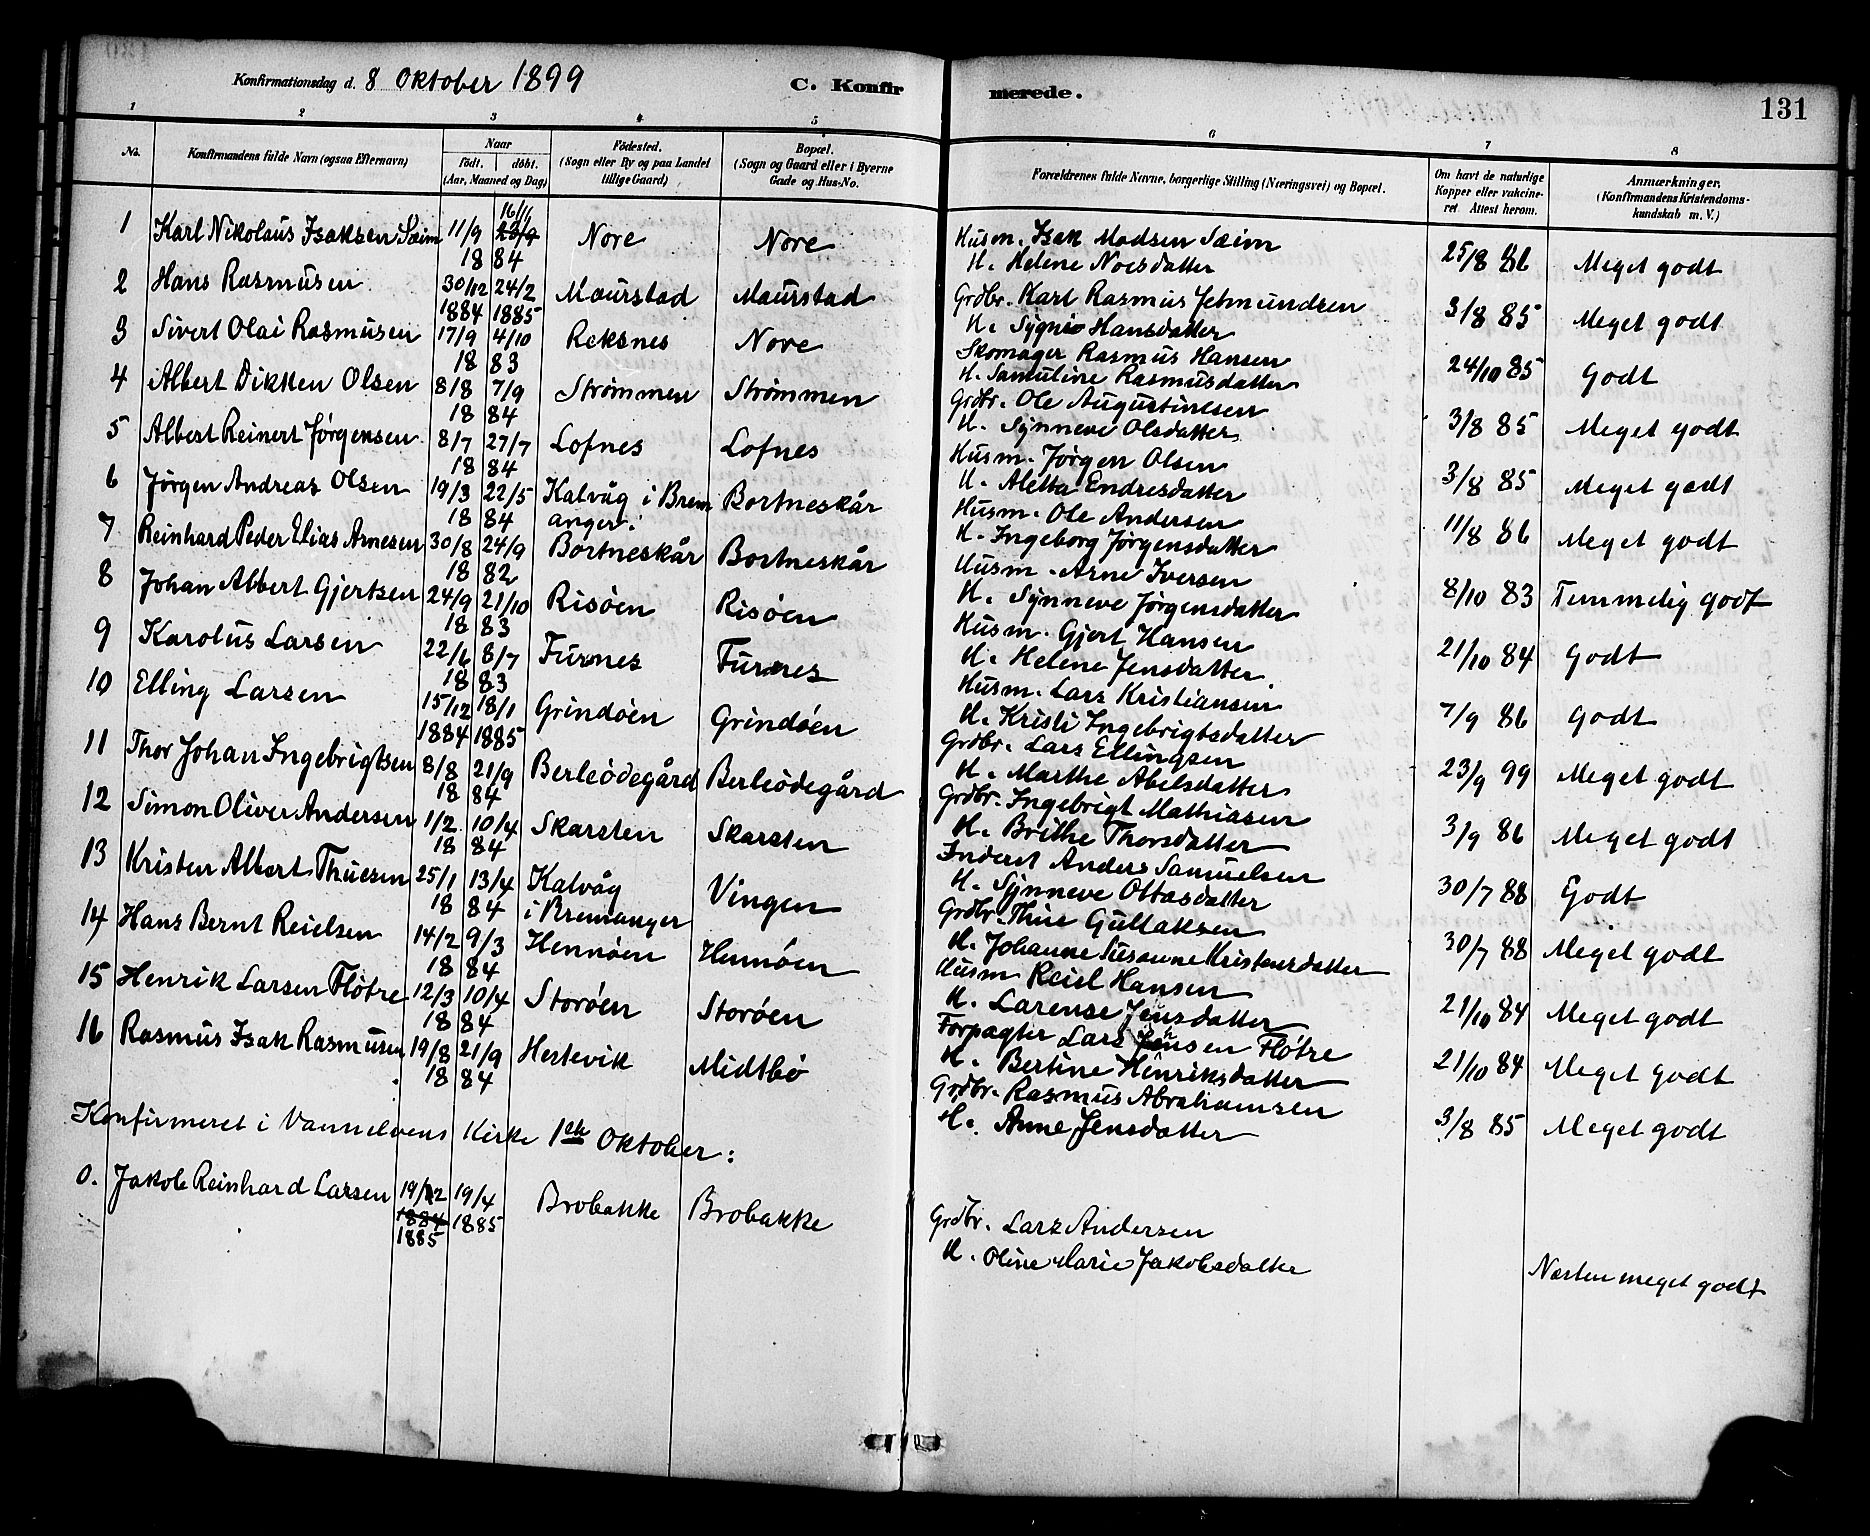 Konfirmationsdag d. 8 Oktober 1899 C. Konfirmerede. 131
1 2 3 4 5 6 7 8
No. Konfirmandens fulde Navn (ogsaa Efternavn) Naar født, døbt. (Aar, Maaned og Dag) Fødested. (Sogn eller By og paa Landet tillige Gaard) Bopæl. (Sogn og Gaard eller i Byerne Gade og Hus-No. Forældrenes fulde Navne, borgerlige Stilling (Næringsvei) og Bopæl. Om havt de naturlige Kopper eller vakcineret Attest herom. Anmærkninger. (Konfirmandens Kristendomskundskab m. V.)
1 Karl Nikolaus Isaksen Sæim 11/9 16/11 1884 Nore Nore Husm. Isak Madsen Sæim
H. Helene Noesdatter 25/8 86 Meget godt
2 Hans Rasmusen 30/12 1884 24/2 1885 Maurstad Maurstad Grdbr. Karl Rasmus Jetmundsen
H. Sygni Hansdatter 3/8 85 Meget godt
3 Sivert Olai Rasmusen 17/9 4/10 1883 Reksnes Nore Skomager Rasmus Hansen
H. Samuline Rasmusdatter 24/10 85 Godt
4 Albert Dikken Olsen 8/8 7/9 1884 Strømmen Strømmen Grdbr. Ole Augustinesen
H. Synneve Olsdatter 3/8 85 Meget godt
5 Albert Reinert Jørgensen 8/7 27/7 1884 Lofnes Lofnes Husm. Jørgen Olsen
H. Aletta Endresdatter 3/8 85 Meget godt
6 Jørgen Andreas Olsen 19/3 22/5 1884 Kalvåg i Bremanger. Bortneskår Husm. Ole Andersen
H. Ingeborg Jørgensdatter 11/8 86 Meget godt
7 Reinhard Peder Elias Arnesen 30/8 24/9 1882 Bortneskår Bortneskår Husm. Arne Iversen
H. Synneve Jørgensdatter 8/10 83 Temmelig godt
8 Johan Albert Gjertsen 24/9 21/10 1883 Risøen Risøen Husm. Gjert Hansen
H. Helene Jensdatter 21/10 84 Godt
9 Karolus Larsen 22/6 8/7 1883 Furnes Furnes Husm. Lars Kristiansen
H. Kristi Ingebrigtsdatter 7/9 86 Godt
10 Elling Larsen 15/12 1884 18/1 1885 Grindøen Grindøen Grdbr. Lars Ellingsen
H. Marthe Abelsdatter 23/9 99 Meget godt
11 Thor Johan Ingebrigtsen 8/8 21/9 1884 Berleødegård Berleødegård Grdbr. Ingebrigt Mathiasen
H. Brithe Thorsdatter 3/9 86 Meget godt
12 Simon Oliver Andersen 1/2 10/4 1884 Skarsten Skarsten Inderst Anders Samuelsen
H. Synneve Ottosdatter 30/7 88 Godt
13 Kristen Albert Thuesen 25/1 13/4 1884 Kalvåg i Bremanger Vingen Grdbr. Thue Gullaksen
H. Johanne Susanne Kristensdatter 30/7 88 Meget godt
14 Hans Bernt Reielsen 14/2 9/3 1884 Hennøen Hennøen Husm Reiel Hansen
H. Larense Jensdatter 21/10 84 Meget godt
15 Henrik Larsen Fløtre 12/3 10/4 1884 Storøen Storøen Forpagter Lars Jensen Fløtre
H. Bertine Henriksdatter 21/10 84 Meget godt
16 Rasmus Isak Rasmusen 19/8 21/9 1884 Hestevik Midtbø Grdbr. Rasmus Abrahamsen
H. Anne Jensdatter 3/8 85 Meget godt
Konfirmeret i Vannelvens Kirke 1ste Oktober:
0. Jakob Reinhard Larsen 19/2 1884 1885 19/4 1885 Brobakke Brobakke Grdbr. Lars Andersen
H. Oline Marie Jakobsdatter Næsten meget godt